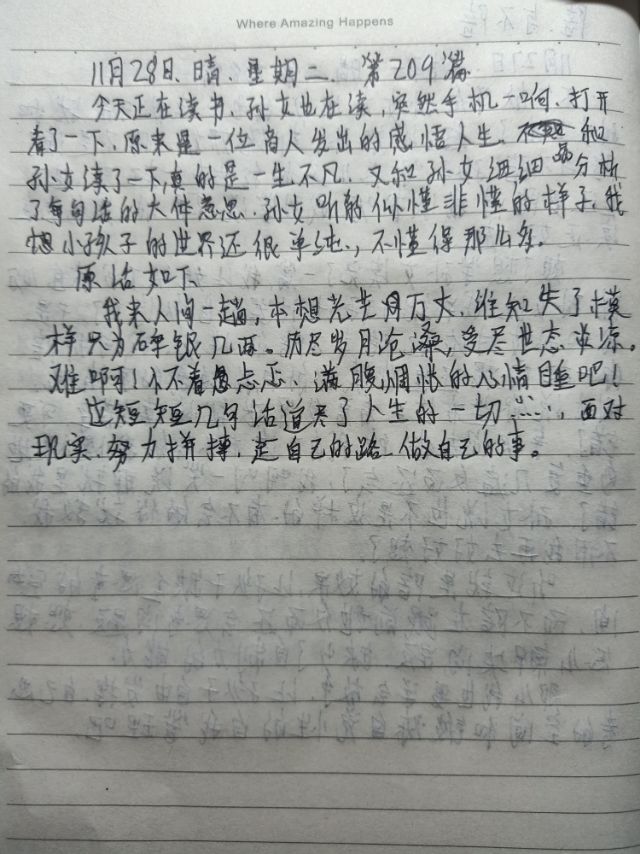 Where Amazing Happens
11月28日、晴、星期二、第209篇
今天正在读书、孙女也在读,突然手机一响、打开
看了一下、原来是一位商人发出的感悟人生、和
孙女读了一下,真的是一生不凡、又和孙女细细的分析
了每句话的大体意思、孙女听的似懂非懂的样子、我
想小孩子的世界还很单纯、不懂得那么多。
原话如下、
我来人间一趟,本想光芒月万丈、谁知失了模
样只为碎银几两。历尽岁月沧桑,受尽世态炎凉。
难啊!怀着忐忑、满腹惆怅的心情睡吧!
这短短几句话道尽了人生的一切……、面对
现实、努力拼搏、走自己的路 做自己的事。